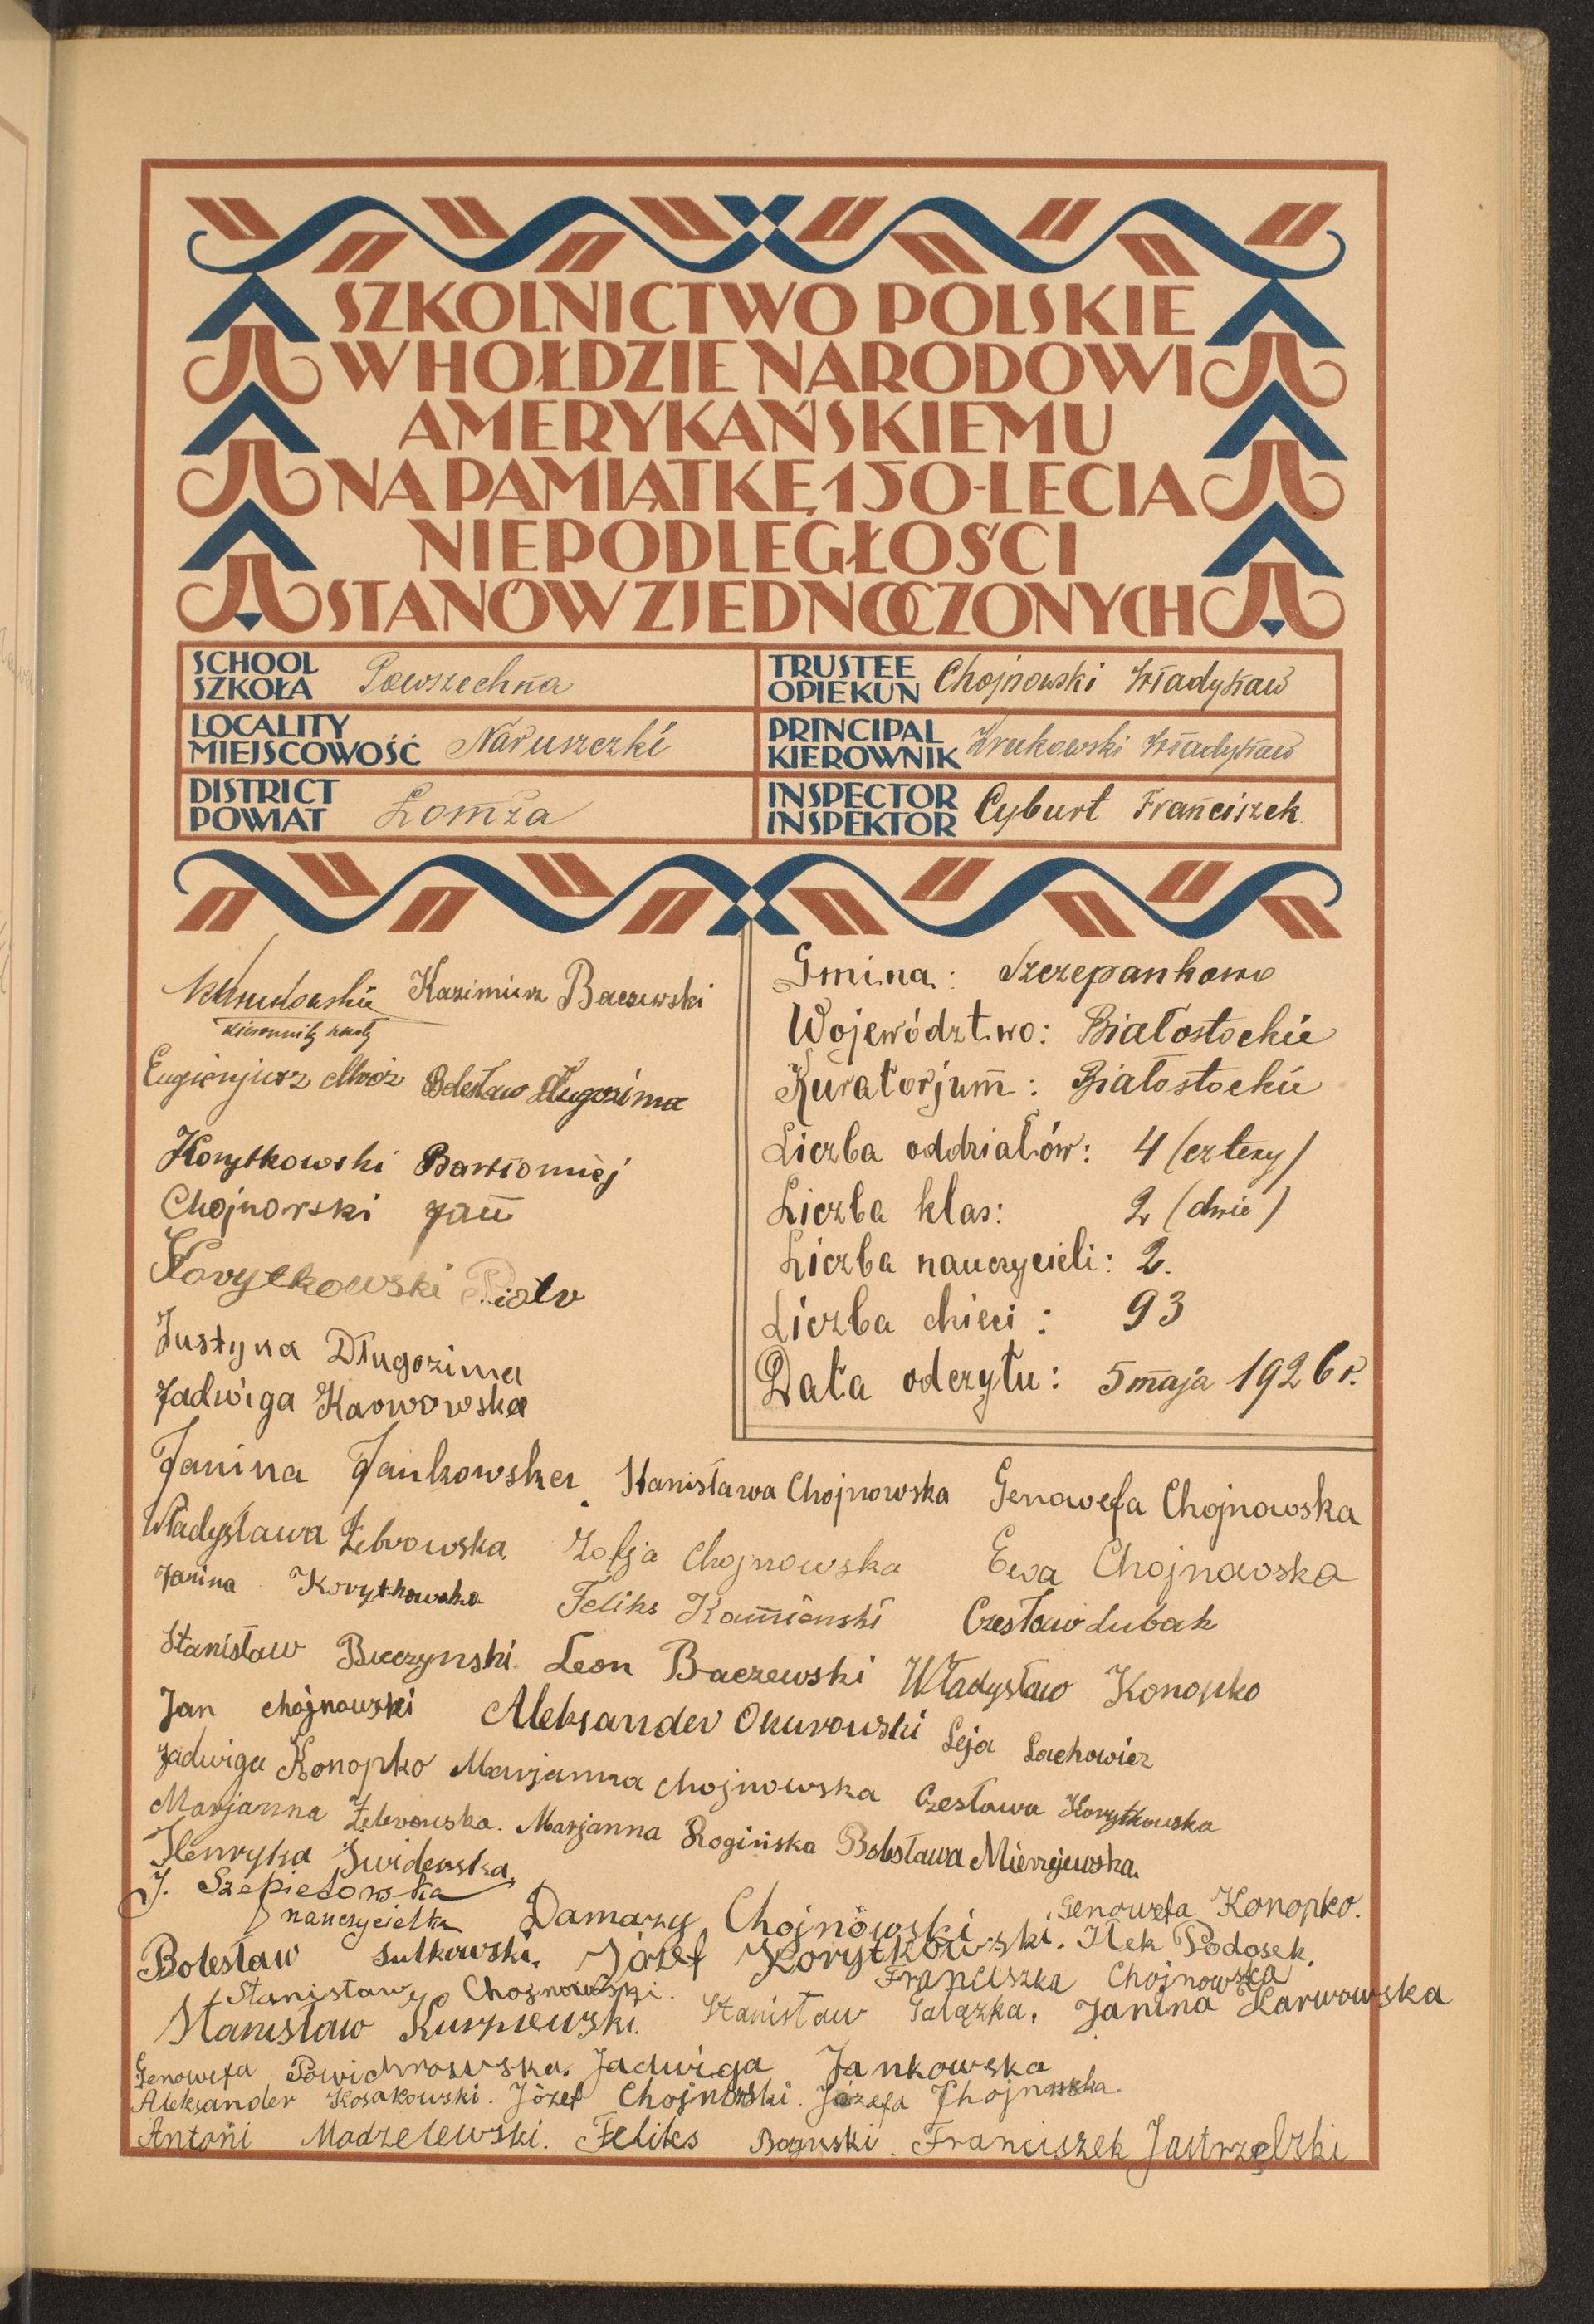 SZKOLNICTWO POLSKIE
W HOŁDZIE NARODOWI
AMERYKAŃSKIEMU
NA PAMIĄTKĘ 150-LECIA
NIEPODLEGŁOŚCI
STANÓW ZJEDNOCZONYCH
SCHOOL
SZKOŁA Powszechna
TRUSTEE
OPIEKUN Chojnowski Władysław
LOCALITY
MIEJSCOWOŚĆ Naruszczki
PRINCIPAL
KIEROWNIK Krukowski Władysław
DISTRICT
POWIAT Łomża
INSPECTOR
INSPEKTOR Cyburt Franciszek
Gmina: Szczepankowo
Województwo: Białostockie
Kuratorjum: Białostockie
Liczba oddziałów: 4 (cztery)
Liczba klas: 2 (dwie)
Liczba nauczycieli: 2.
Liczba dzieci: 93
Data odczytu: 5 maja 1926 r.
WKrukowski Kazimierz Baczewski
kierownik szkoły
Eugienjusz Mróz Bolesław Długozima
Korytkowski Bartłomiej
Chojnowski Jan
Korytkowski Piotr
Justyna Długozima
Jadwiga Karwowska
Janina Jankowska. Stanisława Chojnowska Genowefa Chojnowska
Władysława Żebrowska. Zofja Chojnowska Ewa Chojnowska
Janina Korytkowska Feliks Kamieński Czesław Lubak
Stanisław Buczynski. Leon Baczewski Władysław Konopko
Jan chojnowski Aleksander Okurowski Leja Lachowicz
Jadwiga Konopko Marjanna chojnowska Czesława Korytkowska
Marjanna Żebrowska. Marjanna Rogińska Bolesława Mierzejewska.
Henryka Świderska.
J. Szepietowska
nauczycielka Damazy Chojnowski Genowefa Konopko.
Bolesław Sulkowski. Józef Korytkowski. Ilek Podosek.
Stanisław Chojnowski. Franciszka Chojnowska
Stanisław Kurpiewski. Stanisław Gałązka. Janina Karwowska
Genowefa Powichrowska. Jadwiga Jankowska
Aleksander Kosakowski. Józef Chojnowski. Józefa Chojnowska.
Antoni Modzelewski. Feliks Boguski. Franciszek Jastrzębski